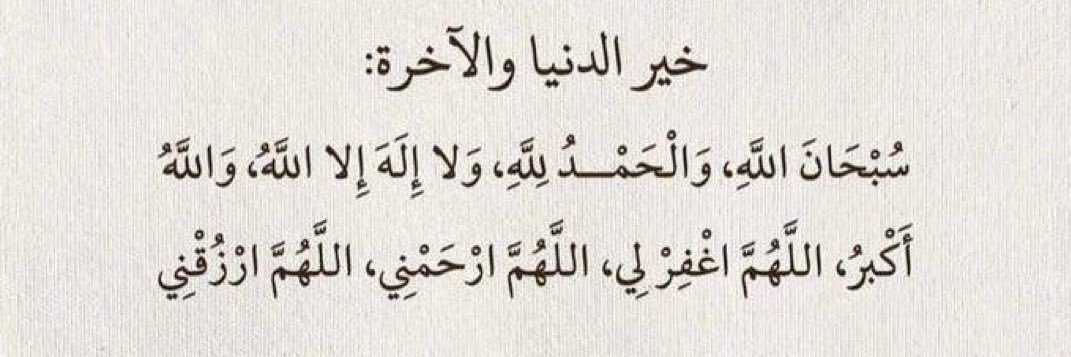 خير الدنيا والآخرة:
سُبْحَانَ اللَّهِ، وَالْحَمْـــدُ لِلَّهِ، وَلا إِلَهَ إِلا اللَّهُ، وَاللَّهُ
أَكْبَرُ، اللَّهُمَّ اغْفِرْ لِي، اللَّهُمَّ ارْحَمْنِي، اللَّهُمَّ ارْزُقْنِي